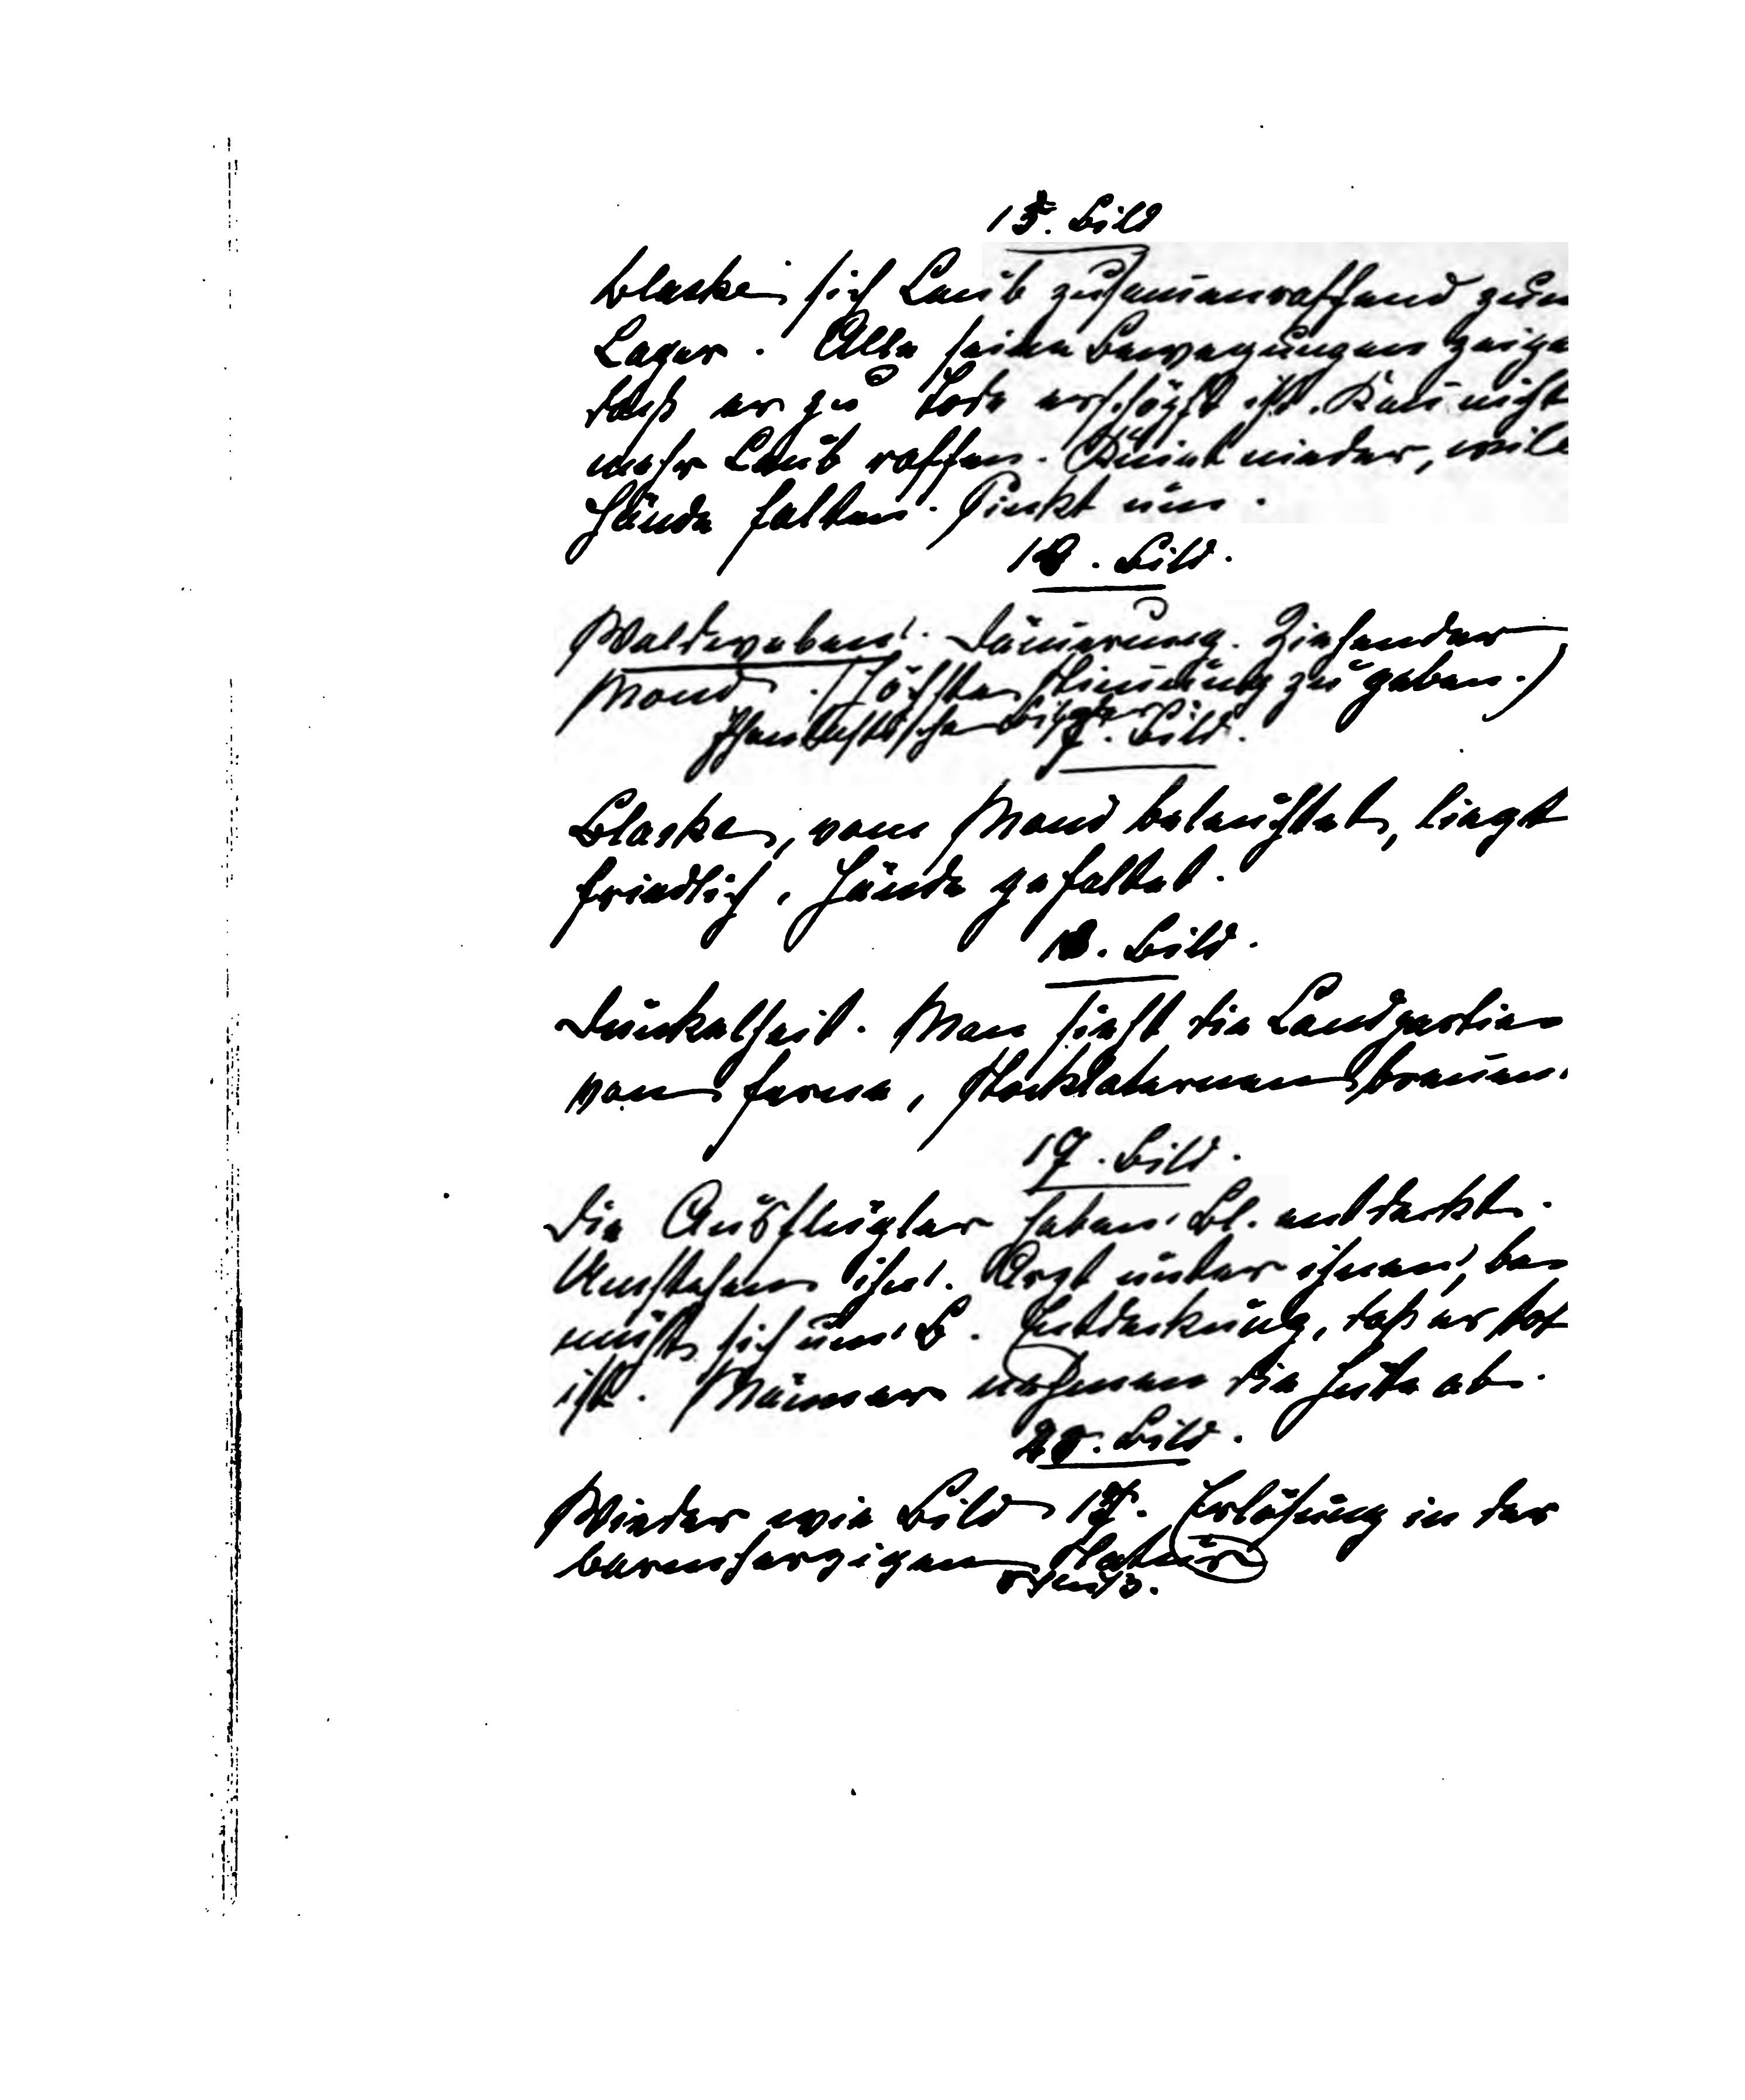 15. Bild
Blaske sich Laub zusammenraffend zum
Lager. Alle seine Bewegungen zeige
daß er zu Tode erschöpft ist. Kann nicht
mehr Laub raffen. Kniet nieder, will
Hände falten. Sinkt um.
16. Bild.
Waldweben. Dämmerung. Ziehender
Mond. (Höchste Stimmung zu geben.)
Phantastische Bilder
17. Bild.
Blaske, vom Mond beleuchtet, liegt
friedlich, Hände gefaltet.
18. Bild.
Dunkelheit. Man sieht die Landpartie
von ferne, Stocklaternen brennen.
19. Bild.
Die Ausflügler haben Bl. entdeckt.
Umstehen ihn. Arzt unter ihnen, be-
müht sich um B. Entdeckung, daß er tot
ist. Männer nehmen die Hüte ab.
20. Bild.
Wieder wie Bild 17. Erlösung in der
barmherzigen Natur